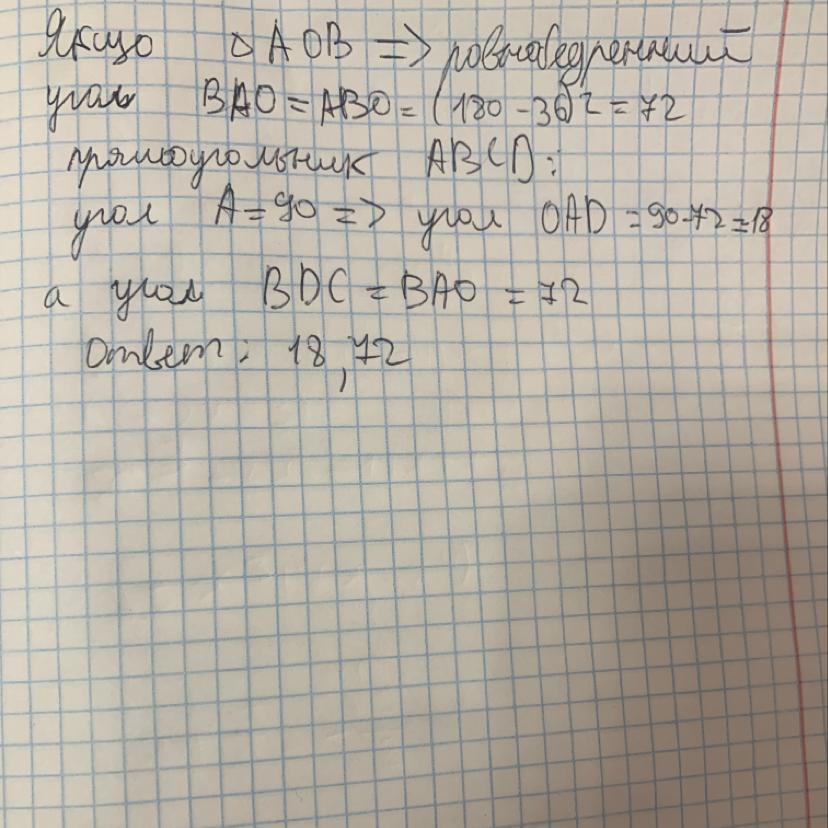 Якщо △ AOB => ровнобедренний
угол BAO = ABO = (180 - 36)2 = 72
прямоугольник ABCD:
угол A = 90 => угол OAD = 90-72=18
а угол BDC = BAO = 72
Ответ: 18, 72